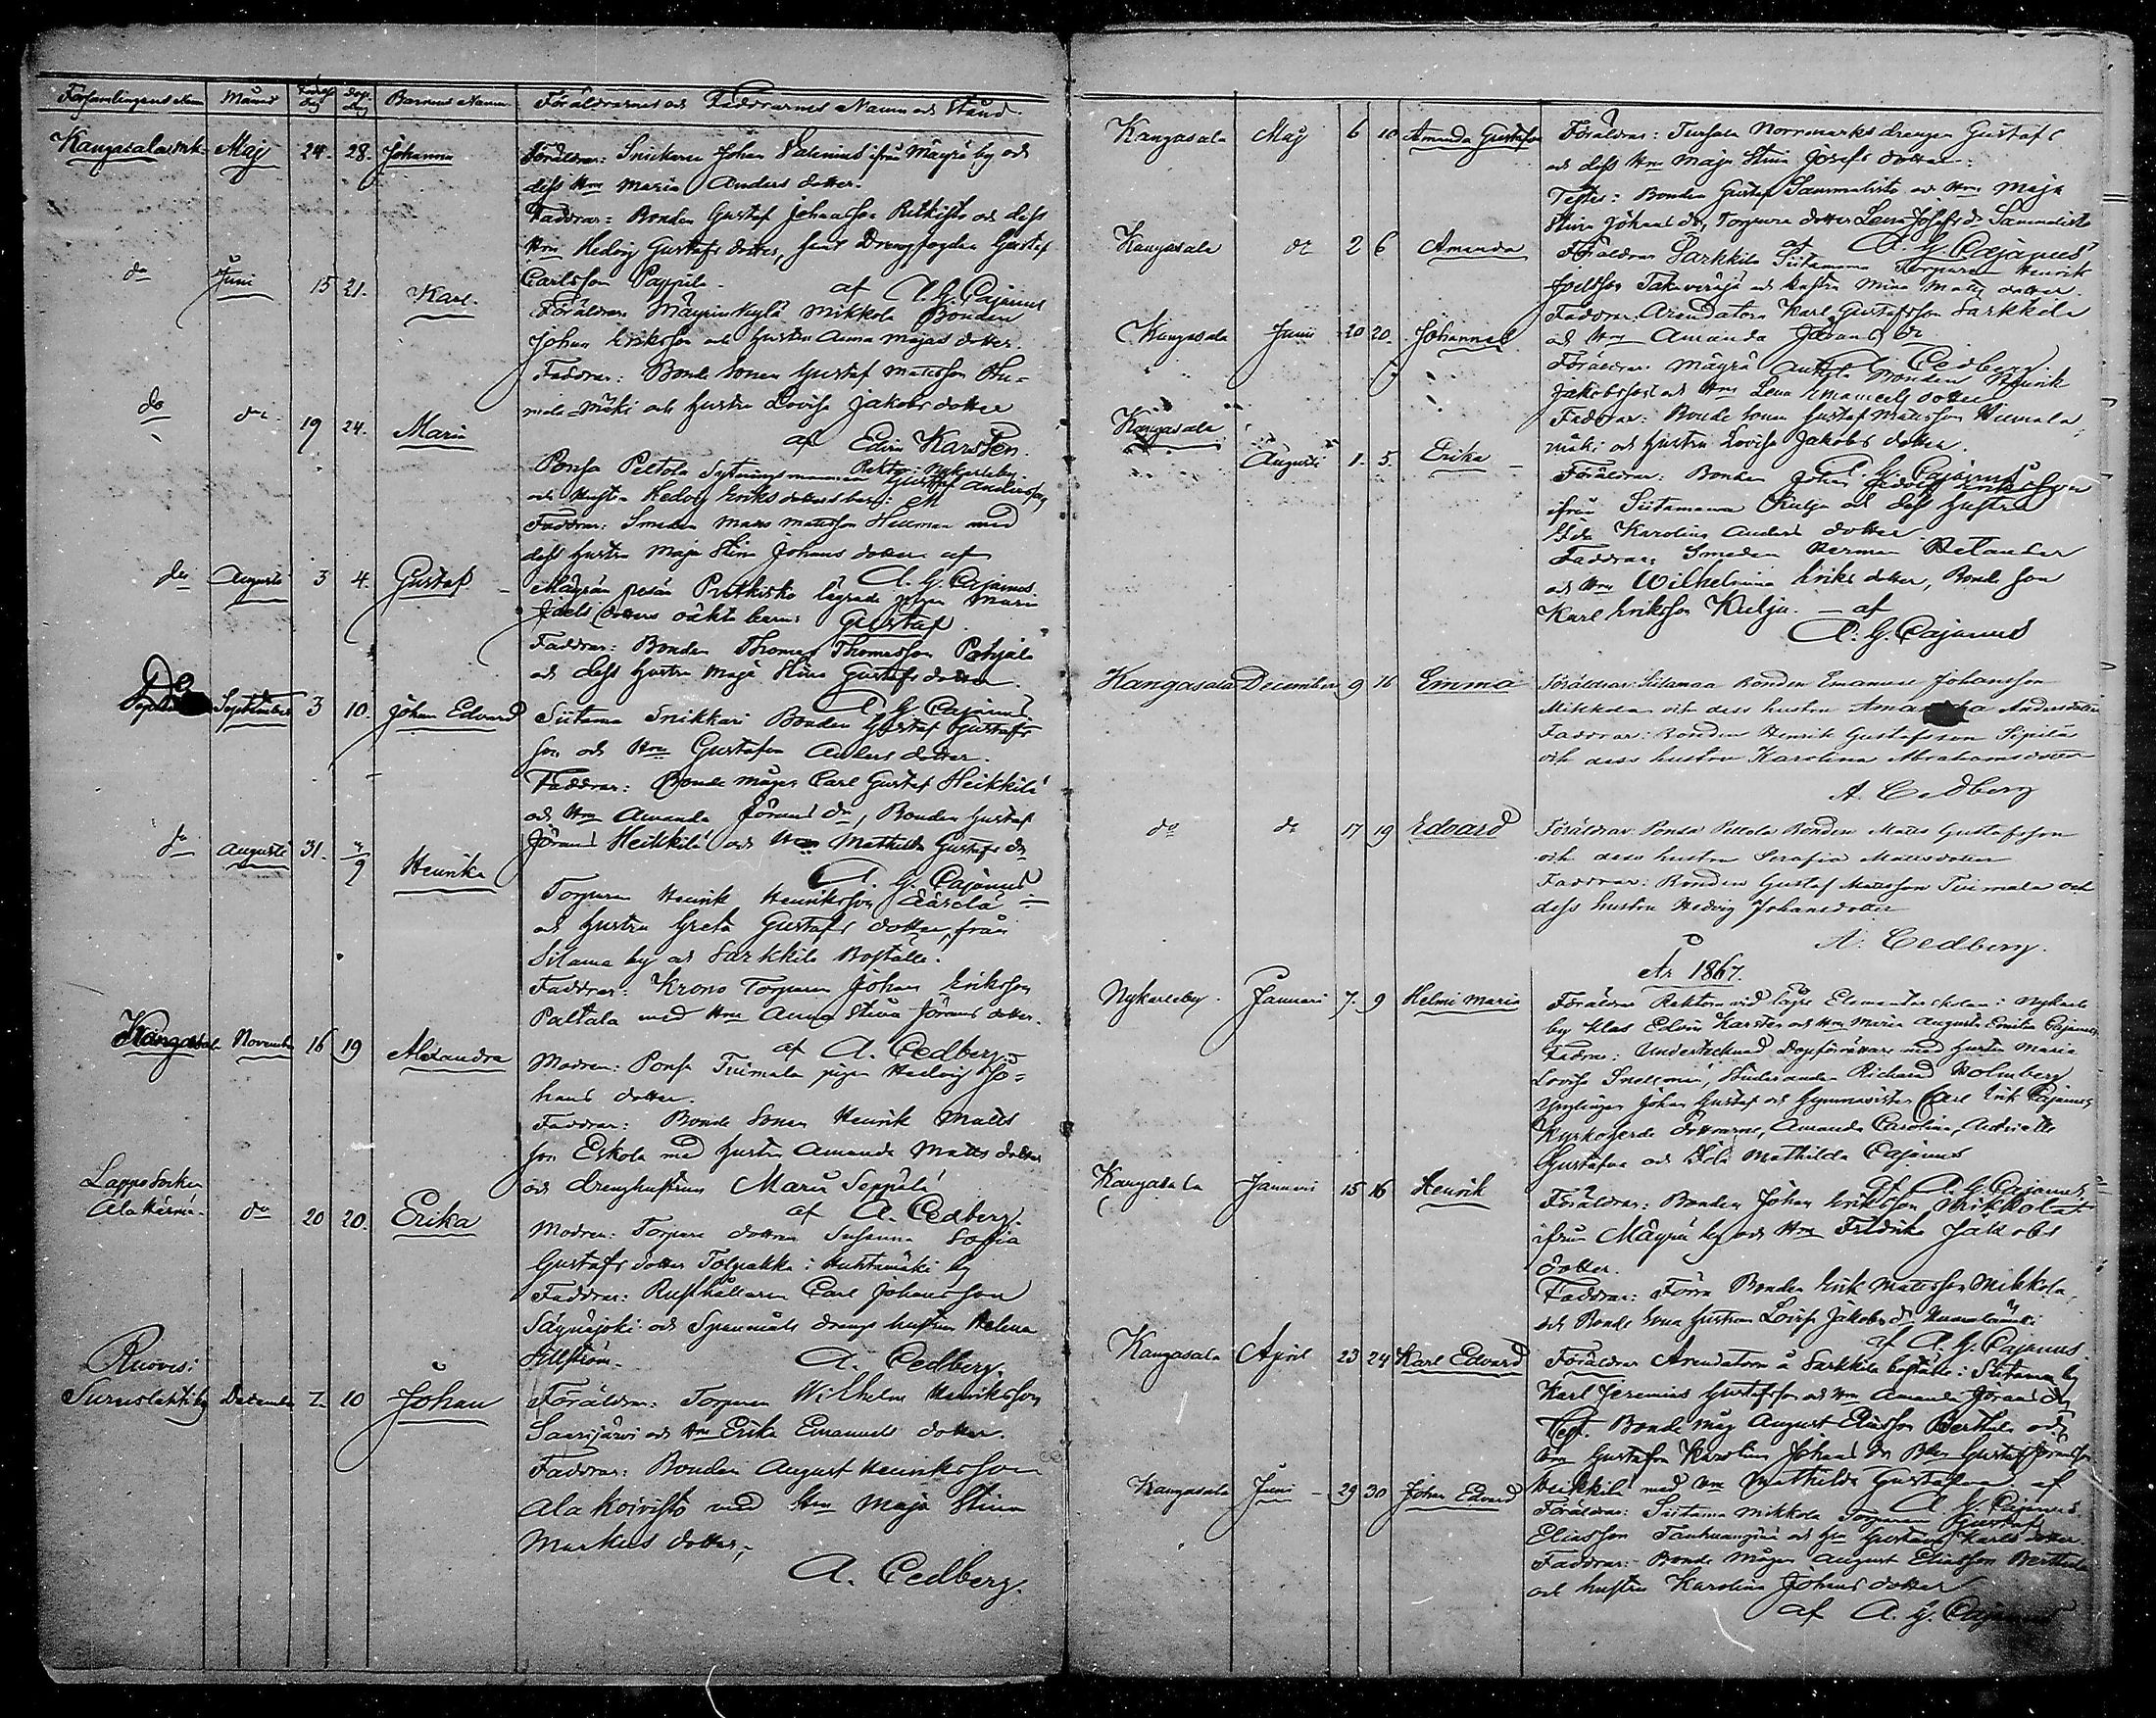 Församlingens Namn Månad Födelse dag Dop. dag Barnens Namn Föräldrarnes och Faddrarnes Namn och Stånd
Kangasala Maj 24. 28. Johanna Föräldrar: Snickaren Johan ifrån Mäyrä by och
dess Hru Maria Anders dotter.
Faddrar: Bonden Gustaf Johansson och dess
Hru Hedvig Gustafs dotter, samt Drengfogden Gustaf
Carlsson Pappila. af A. G. Cajanus
do Juni 15 21. Karl. Föräldrar Mäyrinkylä Mikkola Bonden
Johan Eriksson och hustru Anna Majas dotter.
Faddrar: Bonde Sonen Gustaf Mattsson Hu-
mala-mäki och hustru Lovisa Jakobs dotter
af Edvin Karsten.
Rektor i Nykarleby
do do 19 24. Maria Ponsa Peltola Sytningsmannen Gustaf Andersson
och Hustru Hedvig Eriks dotters barn:
Faddrar: Smeden Matts Mattsson Hellman med
dess hustru Maja Stina Johans dotter af
A. G. Cajanus
do Augusti 3 4. Gustaf Mäyrän Putkisko lägrade pigan Maria
Joels dotters oäkta barn: Gustaf
Faddrar: Bonden Thomas Thomasson Pohjala
och dess hustru Maja Stina Gustafs dotter.
A. G. Cajanus
Do September 3 10. Johan Edvard Siitama Snikkari Bonden Gustaf Gustafs
son och Hru Gustafva Anders dotter.
Faddrar: Bonde mågen Carl Gustaf Heikkilä
och Hru Amanda Jörans dr, Bonden Gustaf
Jörans Heikkilä och Hru Mathilda Gustafs dr
A. G. Cajanus
do Augusti 31. 4/9 Henrika Torparen Henrik Henriksson
och hustru Greta Gustafs dotter, från
Sitama by och Sarkkila Boställe.
Faddrar: Krono Torparen Johan Eriksson
Paltala med Hru Anna Stina Jörans dotter.
af A. Cedberg.
Kangasala November 16 19 Alexandra Modren: Ponsa Tuimala pigan Hedvig Jo-
hans dotter.
Faddrar: Bonde Sonen Henrik Matts
son Eskola med hustru Amanda Matts dotter
och drenghustrun Maria Seppälä
af A. Cedberg.
Lappo Socken
Alakärmä do 20 20. Erika Modren: Torpare dottren Susanna Sofia
Gustafs dotter Tolpakka i Huhtamäki by
Faddrar: Rusthållaren Carl Johansson
Säynäjoki och drengs hustrun Helena
Hellström. A. Cedberg.
Ruovesi
by December 7 10 Johan Föräldrar: Torparen Wilhelm Henriksson
Saarijärvi och Hru Erika Emanuels dotter.
Faddrar: Bonden August Henriksson
Alakoivisto med Hru Maja Stina
Markus dotter,
A. Cedberg.
Kangasala Maj 6 10 Amanda Gustafva Föräldrar: Norrmarks drengen Gustaf
och dess Hru Maja Stina Josefs dotter.
Testes: Bonden Gustaf Sammalisto och Hru Maja
Stina Johans dr, Torpare dotter Lena Josefs dr Sammalisto
af A. G. Cajanus
Kangasala do 2 6 Amanda Föräldrar Sarkkila Siitamama Torparen Henrik
Joelsson Takavirsjä och hustru Mina Matts dotter.
Faddrar: Arendatorn Karl Gustafsson Sarkkila
och Hru Amanda Jörans dr
A. Cedberg.
Kangasala Juni 20 20. Johannes Föräldrar Mäyrä Anttila Bonden Henrik
Jakobsson och Hru Lena Emanuels dotter
Faddrar: Bonde Sonen Gustaf Mattsson Humala
mäki och hustru Lovisa Jakobs dotter.
A. G. Cajanus
Kangasala Augusti 1. 5. Erika Föräldrar: Bonden Johan Fredrik Eriksson
ifrån Siitamama Kulju och dess hustru
Ida Karolina Anders dotter
Faddrar: Smeden Herman Helander
och Hru Wilhelmina Eriks dotter, Bonde Son
Karl Eriksson Kulju. — af
A. G. Cajanus
Kangasala December 9 16 Emma Föräldrar: Siitamaa Bonden Emanuel Johansson
Mikkola och dess hustru Amanda Andersdotter
Faddrar: Bonden Henrik Gustafsson Sipilä
och dess hustru Karolina Abrahamsdotter
A. Cedberg
do do 17 19 Edvard Föräldrar: Ponsa Peltola Bonden Matts Gustafsson
och dess hustru Serafia Mattsdotter
Faddrar: Bonden Gustaf Mattsson Tuimala och
dess hustru Hedvig Johansdotter
A. Cedberg.
År 1867.
Nykarleby. Januari 7. 9 Helmi Maria Föräldrar Rektorn vid lägre Elementarskolan i Nykarle
by Klas Edvin Karsten och Hru Maria Augusta Emilia Cajanus
Faddrar: Undertecknad Dopförrättare med hustru Maria
Lovisa Snellman, Studeranden Richard Holmberg
Ynglingen Johan Gustaf och Gymnasisten Carl Erik Cajanus
Kyrkoherde döttrarne, Amanda Carolina, Andriette
Gustafva och Ida Mathilda Cajanus
af A. G. Cajanus
Kangasala Januari 15 16 Henrik Föräldrar: Bonden Johan Eriksson Mikkola
ifrån Mäyrä by och Hru Fredrika Jakobs
dotter.
Faddrar: Förra Bonden Erik Mattsson Mikkola,
och Bonde Sona hustrun Lovisa Jakobs dr Humalamäki
af A. G. Cajanus.
Kangasala April 23 24 Karl Edvard Föräldrar Arendatorn å Sarkkila boställe i Siitama by
Karl Jeremias Gustafsson och Hru Amanda Jörans dr
Test. Bonde måg August Eliasson Berthula och
Hru Gustafva Karolina Johans dr Bden Gustaf Jöransson
Heikkilä med Hru Mathilda Gustafva af
A. G. Cajanus.
Kangasala Juni 29 30 Johan Edvard Föräldrar: Siitama Mikkola Torparen Gustaf
Eliasson Tanhuanpää och Hru Gustava Karls dotter.
Faddrar: Bonde mågen August Eliasson Berthula
och hustru Karolina Johans dotter
af A. G. Cajanus